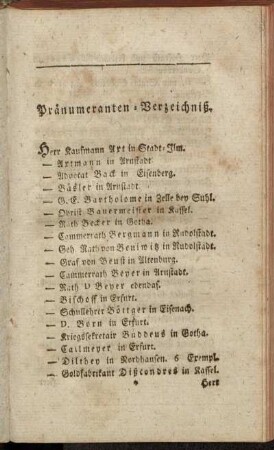 Pränumeranten-Verzeichniß.
Herr Kaufmann Art in Stadt-Ilm.
— Artmann in Arnstadt.
— Advocat Back in Eisenberg.
— Bäßler in Arnstadt.
— G. E. Bartholome in Zelle bey Suhl.
— Obrist Bauermeister in Kassel.
— Rath Becker in Gotha.
— Cammerrath Bergmann in Rudolstadt.
— Geh. Rath von Beulwitz in Rudolstadt.
— Graf von Beust in Altenburg.
— Cammerrath Beyer in Arnstadt.
— Rath D Beyer ebendas.
— Bischoff in Erfurt.
— Schullehrer Böttger in Eisenach.
— D. Born in Erfurt.
— Kriegssekretair Buddeus in Gotha.
— Callmeyer in Erfurt.
— Dilthey in Northausen. 6 Exempl.
— Goldfabrikant Dißcondres in Kassel.
* Herr